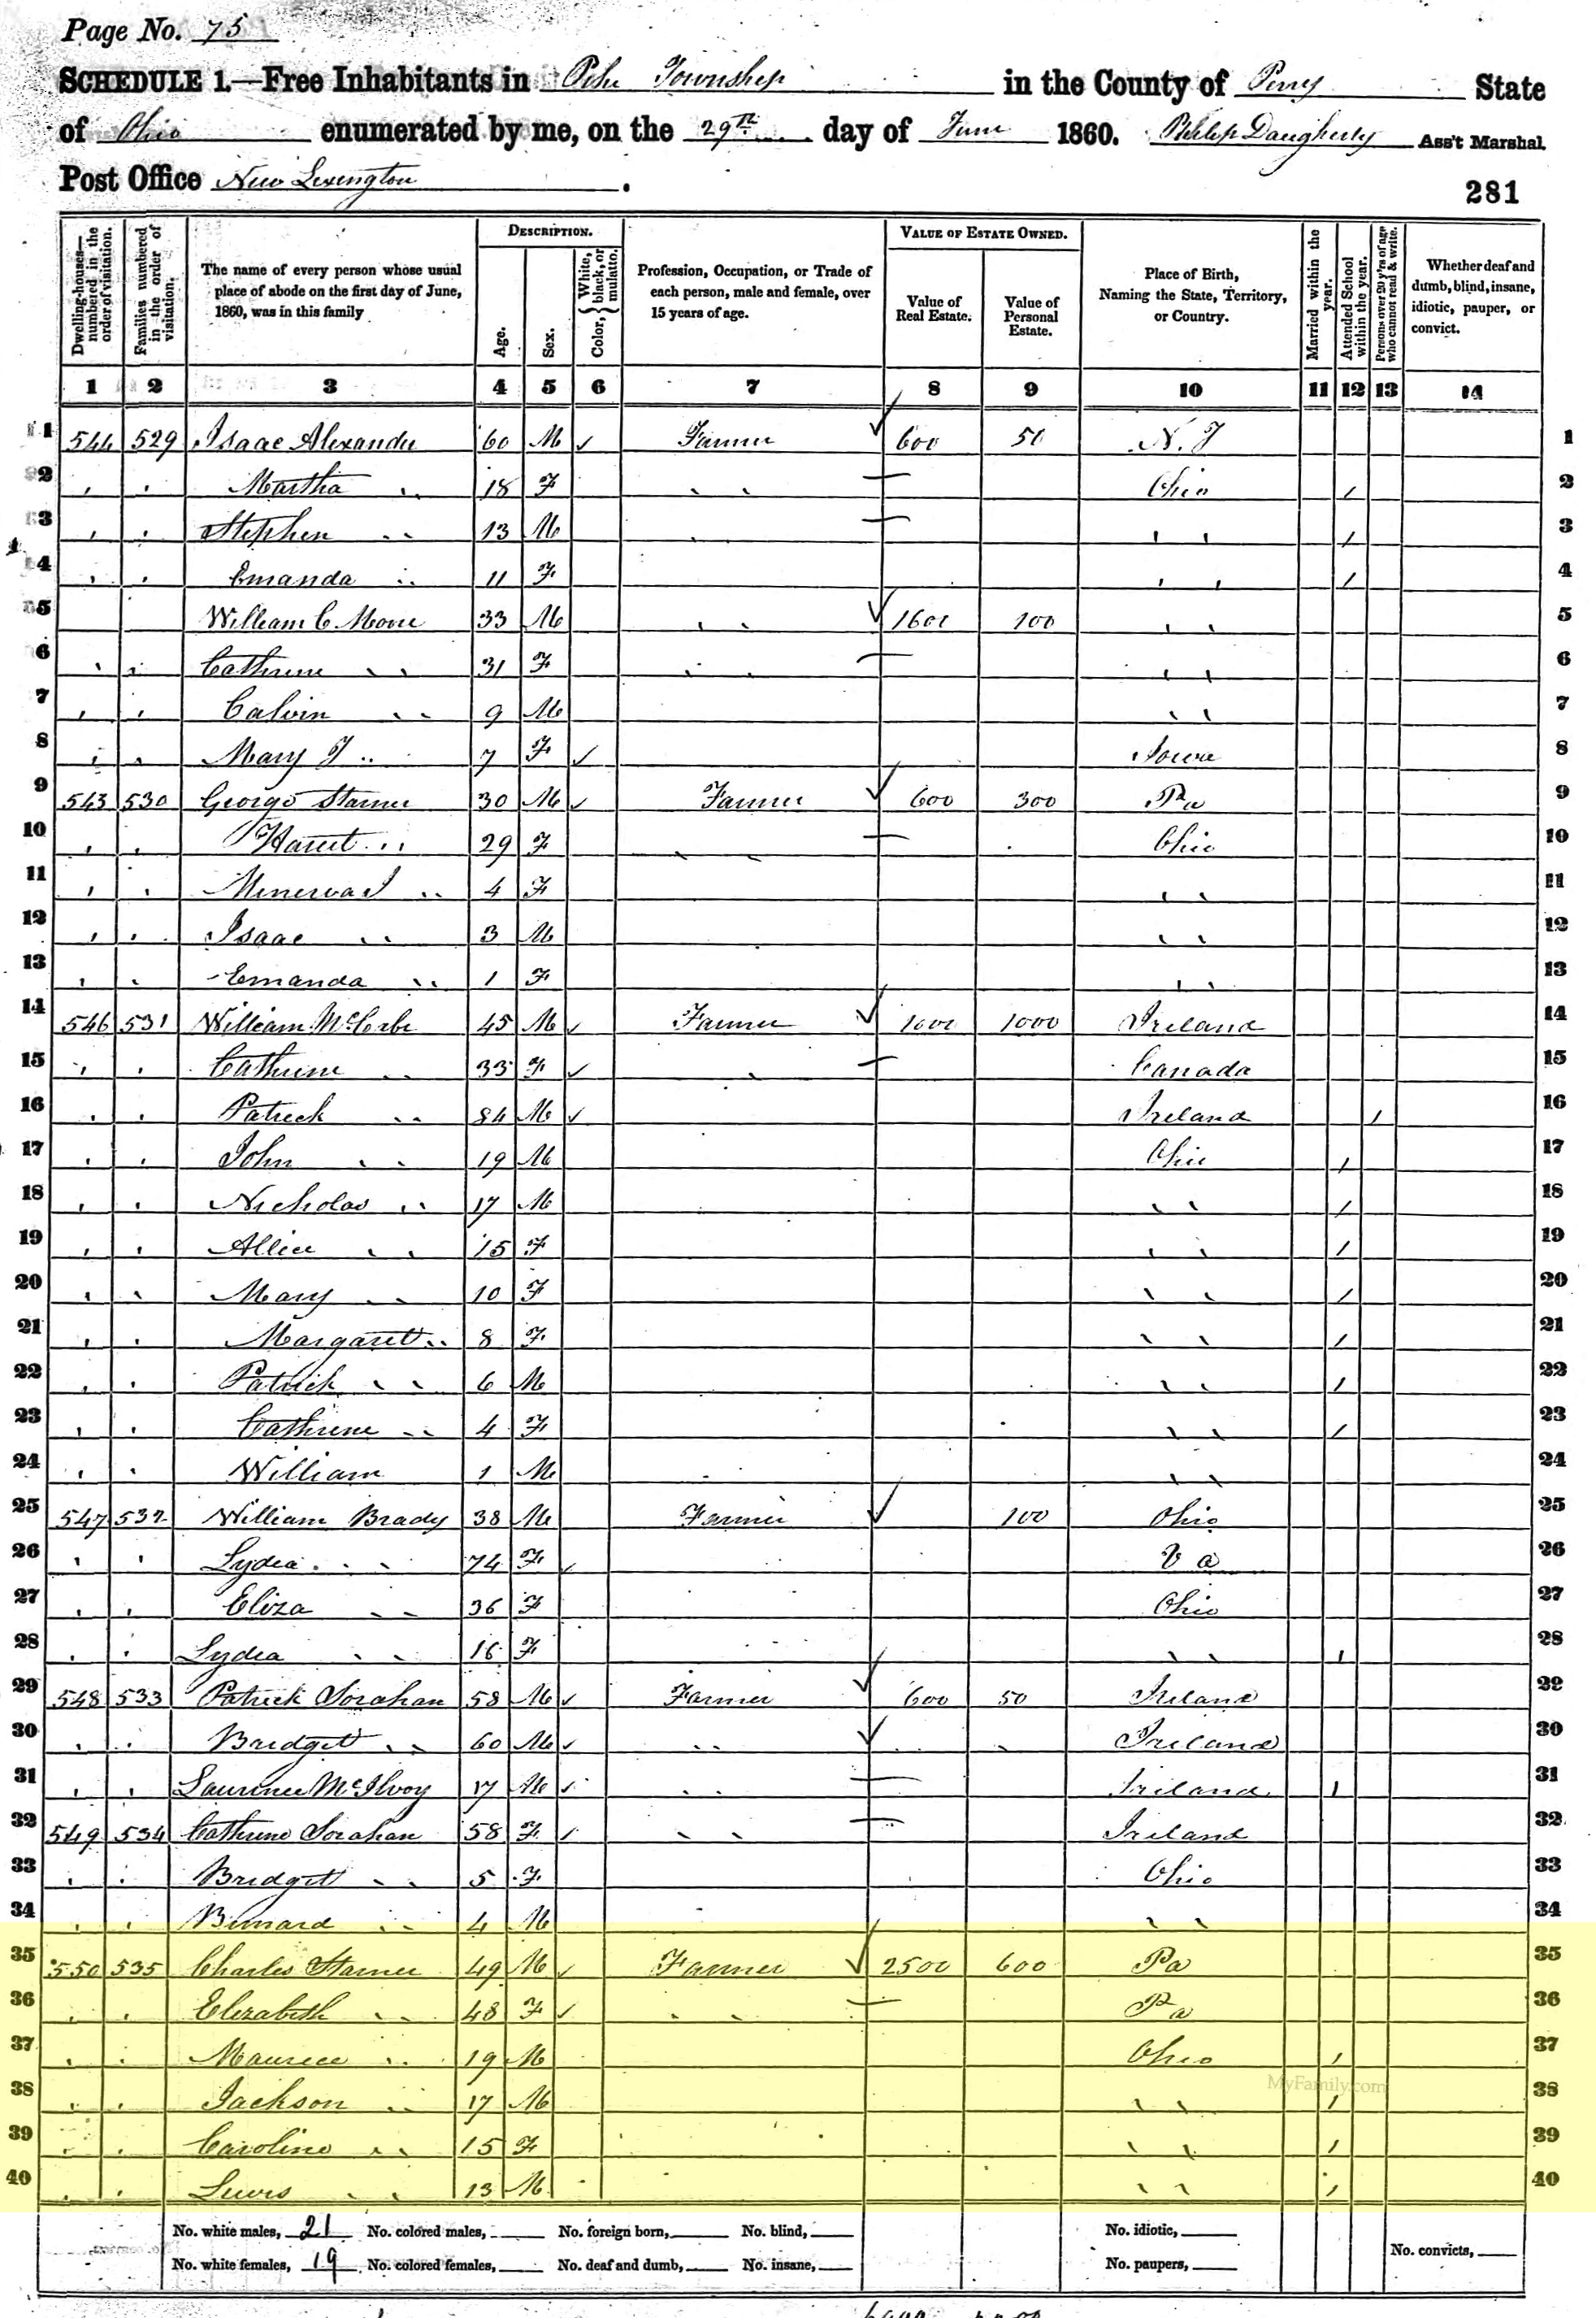 Page No. 75
SCHEDULE 1.—Free Inhabitants in Pike Township in the County of Perry State
of Ohio enumerated by me, on the 29th day of June 1860. Philip Daugherty Ass't Marshal.
Post Office New Lexington.
281
Dwelling-houses—numbered in the order of visitation.
Families numbered in the order of visitation.
The name of every person whose usual place of abode on the first day of June, 1860, was in this family
DESCRIPTION.
Age.
Sex.
Color, { White, black, or mulatto.
Profession, Occupation, or Trade of each person, male and female, over 15 years of age.
VALUE OF ESTATE OWNED.
Value of Real Estate.
Value of Personal Estate.
Place of Birth, Naming the State, Territory, or Country.
Married within the year.
Attended School within the year.
Persons over 20 y'rs of age who cannot read & write.
Whether deaf and dumb, blind, insane, idiotic, pauper, or convict.
1 2 3 4 5 6 7 8 9 10 11 12 13 14
1 544 529 Isaac Alexander 60 M ✓ Farmer ✓ 600 50 N. J 1
2 " " Martha " 18 F " " Ohio / 2
3 " " Stephen " 13 M " " / 3
4 " " Emanda " 11 F " " / 4
5 William C Moore 33 M " " ✓ 1600 100 " " 5
6 " " Cathrine " 31 F " " " " 6
7 " " Calvin " 9 M " " 7
8 " " Mary J " 7 F ✓ Iowa 8
9 543 530 George Starner 30 M ✓ Farmer ✓ 600 300 Pa 9
10 " " Hariet " 29 F " " Ohio 10
11 " " Minerva J " 4 F " " 11
12 " " Isaac " 3 M " " 12
13 " " Emanda " 1 F " " 13
14 546 531 William McCabe 45 M ✓ Farmer ✓ 1000 1000 Ireland 14
15 " " Cathrine " 33 F ✓ Canada 15
16 " " Patrick " 84 M ✓ Ireland / 16
17 " " John " 19 M Ohio / 17
18 " " Nicholas " 17 M " " / 18
19 " " Allice " 15 F " " / 19
20 " " Mary " 10 F " " / 20
21 " " Margaret " 8 F " " / 21
22 " " Patrick " 6 M " " / 22
23 " " Cathrine " 4 F " " / 23
24 " " William 1 M " " 24
25 547 532 William Brady 38 M Farmer ✓ 100 Ohio 25
26 " " Lydia " 74 F ✓ Va 26
27 " " Eliza " 36 F Ohio 27
28 " " Lydia " 16 F " " / 28
29 548 533 Patrick Sorahan 58 M ✓ Farmer ✓ 600 50 Ireland 29
30 " " Bridget " 60 M ✓ " " ✓ Ireland 30
31 " " Laurence McIlvoy 17 M ✓ " " Ireland / 31
32 549 534 Cathrine Sorahan 58 F ✓ " " Ireland 32
33 " " Bridget " 5 F Ohio 33
34 " " Bernard " 4 M " " 34
35 550 535 Charles Starner 49 M ✓ Farmer ✓ 2500 600 Pa 35
36 " " Elizabeth " 48 F ✓ " " Pa 36
37 " " Maurice " 19 M Ohio / 37
38 " " Jackson " 17 M " " / 38
MyFamily.com
39 " " Caroline " 15 F " " / 39
40 " " Lewis " 13 M " " / 40
No. white males, 21 No. colored males, No. foreign born, No. blind, No. idiotic,
No. white females, 19 No. colored females, No. deaf and dumb, No. insane, No. paupers, No. convicts,